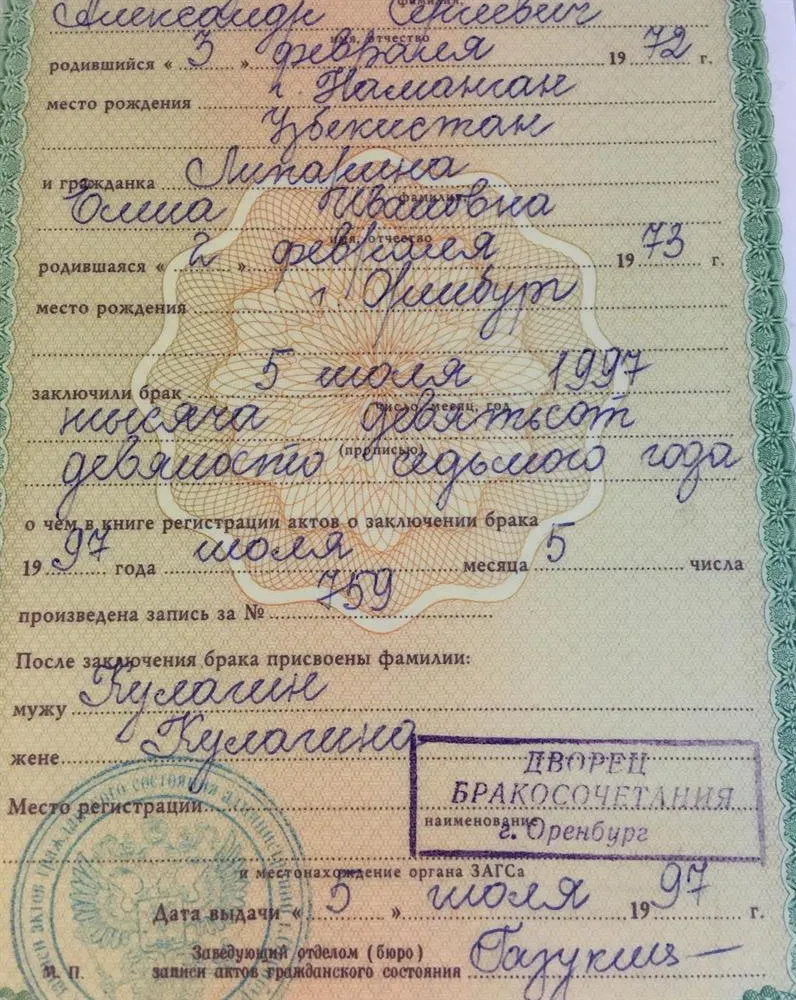 фамилия,
Александр Сергеевич
имя, отчество
родившийся « 3 » февраля 1972 г.
место рождения г. Наманган
Узбекистан
и гражданка Липаткина
фамилия
Елена Ивановна
имя, отчество
родившаяся « 2 » февраля 1973 г.
место рождения г. Оренбург
заключили брак 5 июля 1997
число, месяц, год
тысяча девятьсот
(прописью)
девяносто седьмого года
о чем в книге регистрации актов о заключении брака
1997 года июля месяца 5 числа
произведена запись за № 759
После заключения брака присвоены фамилии:
мужу Кулагин
жене Кулагина
Место регистрации
ДВОРЕЦ
БРАКОСОЧЕТАНИЯ
наименование
г. Оренбург
и местонахождение органа ЗАГСа
Дата выдачи « 5 » июля 1997 г.
Заведующий отделом (бюро)
М. П. записи актов гражданского состояния